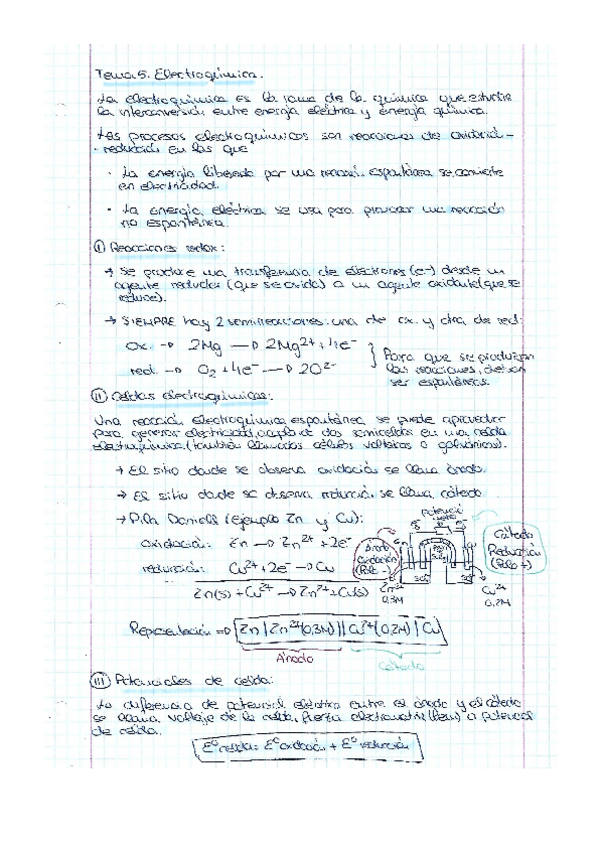 Tema 5. Electroquímica.
La electroquímica es la rama de la química que estudia
la interconversión entre energía eléctrica y energía química.
Los procesos electroquímicos son reacciones de oxidación-
reducción en las que
· La energía liberada por una reacción espontánea se convierte
en electricidad.
· La energía eléctrica se usa para provocar una reacción
no espontánea.
I Reacciones redox:
→ Se produce una transferencia de electrones (e-) desde un
agente reductor (que se oxida) a un agente oxidante (que se
reduce).
→ SIEMPRE hay 2 semirreacciones: una de ox. y otra de red:
ox. → 2Mg → 2Mg2+ + 4e-
red. → O2 + 4e- → 2O2-
} Para que se produzcan
las reacciones, deben
ser espontáneas.
II Celdas electroquímicas:
Una reacción electroquímica espontánea se puede aprovechar
para generar electricidad, acoplando dos semiceldas en una celda
electroquímica (también llamadas células voltaicas o galvánicas).
→ El sitio donde se observa oxidación se llama ánodo.
→ El sitio donde se observa reducción se llama cátodo.
→ Pila Daniell (ejemplo Zn y Cu):
oxidación: Zn → Zn2+ + 2e-
reducción: Cu2+ + 2e- → Cu
Zn(s) + Cu2+ → Zn2+ + Cu(s)
Ánodo
Oxidación
(Polo -)
Cátodo
Reducción
(Polo +)
Zn2+
0,3M
Cu2+
0,2M
Representación ⇒ Zn | Zn2+(0,3M) || Cu2+(0,2M) | Cu
Ánodo
Cátodo
III Potenciales de celda:
La diferencia de potencial eléctrico entre el ánodo y el cátodo
se llama voltaje de la celda, fuerza electromotriz (fem) o potencial
de celda.
E° celda = E° oxidación + E° reducción